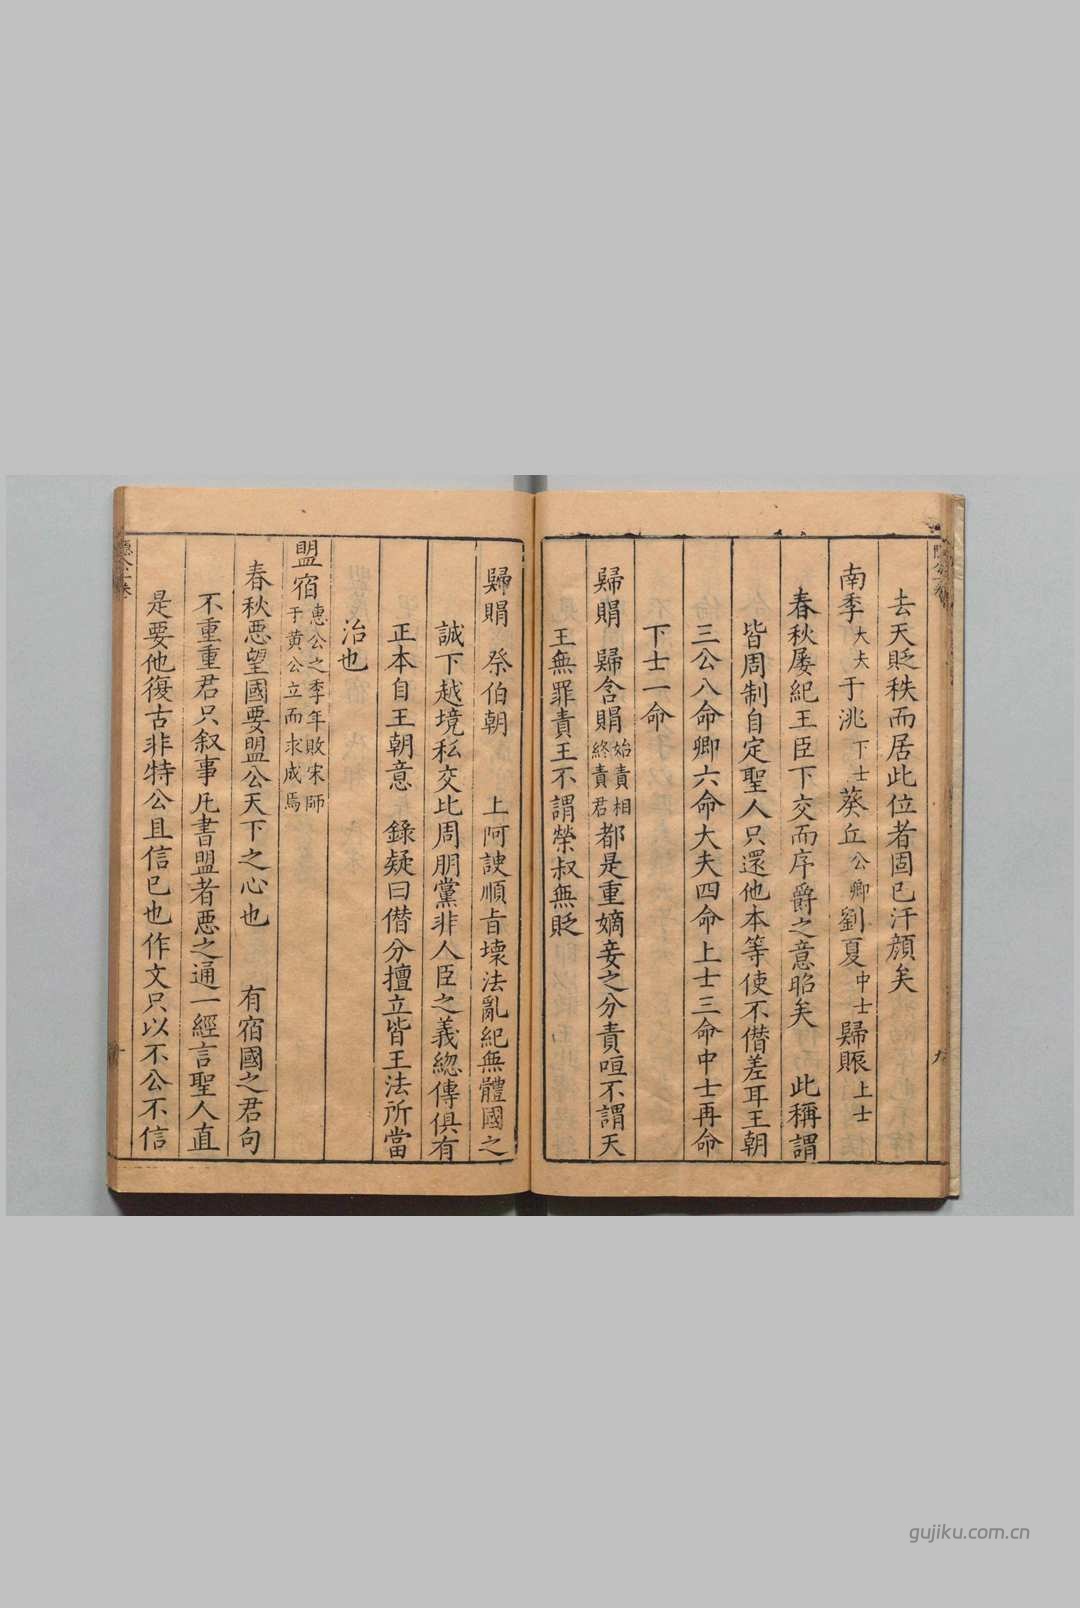 去天貶秩而居此位者固已汗顔矣
南季大夫于洮下士葵丘公卿劉夏中士歸賑上士
春秋屡紀王臣下交而序爵之意昭矣 此稱謂
皆周制自定聖人只還他本等使不僭差耳王朝
三公八命卿六命大夫四命上士三命中士再命
下士一命
歸賵 歸含賵始責相終責君都是重嫡妾之分責咺不謂天
王無罪責王不謂榮叔無貶
歸賵 祭伯朝 上阿諛順旨壞法亂紀無體國之
誠下越境私交比周朋黨非人臣之義緫傳俱有
正本自王朝意 錄疑曰僣分擅立皆王法所當
治也
盟宿惠公之季年敗宋師于黄公立而求成焉
春秋惡望國要盟公天下之心也 有宿國之君句
不重重君只叙事凡書盟者惡之通一經言聖人直
是要他復古非特公且信已也作文只以不公不信
gujiku.com.cn